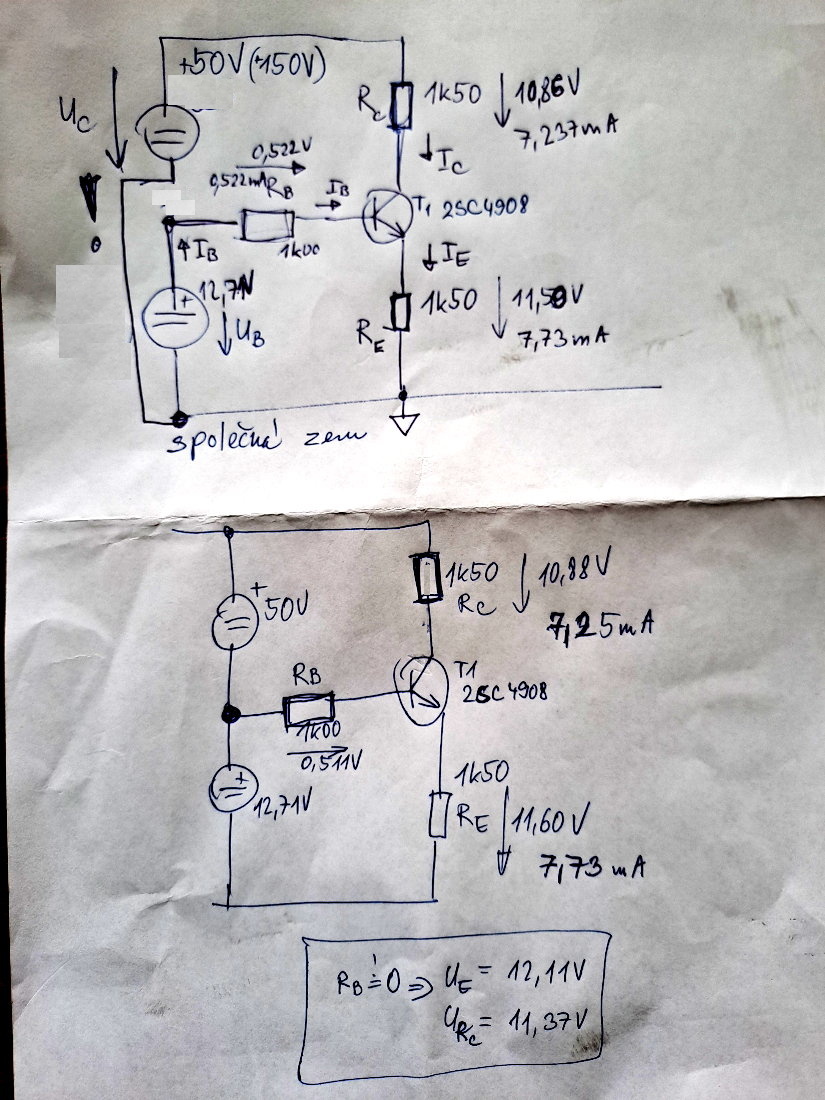 +50V(+150V)
Uc
Rc 1k50 10,86V
7,237mA
Ic
0,522V
0,522mA RB IB
T1 2SC4908
IB 1k00
IE
12,71V
UB
1k50 11,59V
RE 7,73mA
společná zem
+ 50V
1k50 10,88V
Rc 7,25mA
RB
T1
2SC4908
1k00
0,511V
+ 12,71V
1k50
RE 11,60V
7,73mA
RB ≐ 0 ⇒ UE = 12,11V
URc = 11,37V